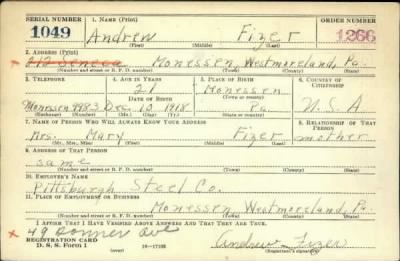 SERIAL NUMBER 1. NAME (Print) ORDER NUMBER
1049 Andrew Fizer 1266
(First) (Middle) (Last)
2. ADDRESS (Print)
212 Seneca Monessen, Westmoreland, Pa.
(Number and street or R. F. D. number) (Town) (County) (State)
3. TELEPHONE 4. AGE IN YEARS 5. PLACE OF BIRTH 6. COUNTRY OF CITIZENSHIP
21 Monessen
DATE OF BIRTH (Town or county)
Monessen 998J Dec. 10 1918 Pa. U.S.A
(Exchange) (Number) (Mo.) (Day) (Yr.) (State or country)
7. NAME OF PERSON WHO WILL ALWAYS KNOW YOUR ADDRESS 8. RELATIONSHIP OF THAT PERSON
Mrs. Mary Fizer mother
(Mr., Mrs., Miss) (First) (Middle) (Last)
9. ADDRESS OF THAT PERSON
same
(Number and street or R. F. D. number) (Town) (County) (State)
10. EMPLOYER'S NAME
Pittsburgh Steel Co.
11. PLACE OF EMPLOYMENT OR BUSINESS
Monessen Westmoreland, Pa.
(Number and street or R. F. D. number) (Town) (County) (State)
I AFFIRM THAT I HAVE VERIFIED ABOVE ANSWERS AND THAT THEY ARE TRUE.
x 49 Donner Ave
REGISTRATION CARD
D. S. S. Form 1 (over) Andrew Fizer
(Registrant's signature)